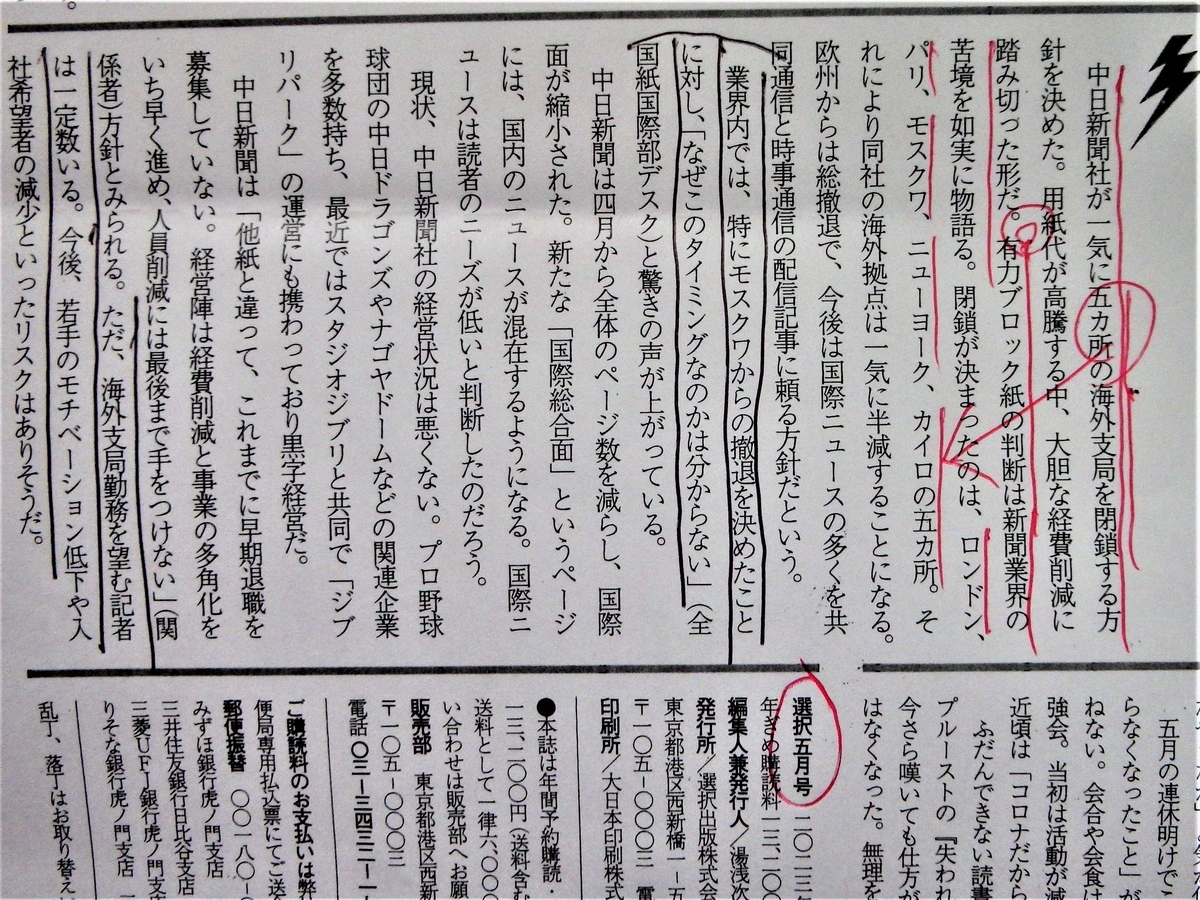 中日新聞社が一気に五カ所の海外支局を閉鎖する方
針を決めた。用紙代が高騰する中、大胆な経費削減に
踏み切った形だ。有力ブロック紙の判断は新聞業界の
苦境を如実に物語る。閉鎖が決まったのは、ロンドン、
パリ、モスクワ、ニューヨーク、カイロの五カ所。そ
れにより同社の海外拠点は一気に半減することになる。
欧州からは総撤退で、今後は国際ニュースの多くを共
同通信と時事通信の配信記事に頼る方針だという。
業界内では、特にモスクワからの撤退を決めたこと
に対し、「なぜこのタイミングなのかは分からない」（全
国紙国際部デスク）と驚きの声が上がっている。
中日新聞は四月から全体のページ数を減らし、国際
面が縮小された。新たな「国際総合面」というページ
には、国内のニュースが混在するようになる。国際ニ
ュースは読者のニーズが低いと判断したのだろう。
現状、中日新聞社の経営状況は悪くない。プロ野球
球団の中日ドラゴンズやナゴヤドームなどの関連企業
を多数持ち、最近ではスタジオジブリと共同で「ジブ
リパーク」の運営にも携わっており黒字経営だ。
中日新聞は「他紙と違って、これまでに早期退職を
募集していない。経営陣は経費削減と事業の多角化を
いち早く進め、人員削減には最後まで手をつけない」（関
係者）方針とみられる。ただ、海外支局勤務を望む記者
は一定数いる。今後、若手のモチベーション低下や入
社希望者の減少といったリスクはありそうだ。
五月の連休明けでこ
らなくなったこと」が
ねない。会合や会食は
強会。当初は活動が減
近頃は「コロナだから
ふだんできない読書
プルーストの『失われ
今さら嘆いても仕方が
はなくなった。無理を
選択五月号 二〇二三年
年ぎめ購読料 一三、二〇〇
編集人兼発行人／湯浅次
発行所／選択出版株式会
東京都港区西新橋一－五
〒一〇五－〇〇〇三 電
印刷所／大日本印刷株式
●本誌は年間予約購読・
一三、二〇〇円（送料含む
送料として一律六、〇〇〇
い合わせは販売部へお願
販売部 東京都港区西新
〒一〇五－〇〇〇三
電話 〇三－三四三二－一
ご購読料のお支払いは弊
便局専用払込票にてご送
郵便振替 〇〇一八〇－
みずほ銀行虎ノ門支店
三井住友銀行日比谷支店
三菱UFJ銀行虎ノ門支店
りそな銀行虎ノ門支店
乱丁、落丁はお取り替え